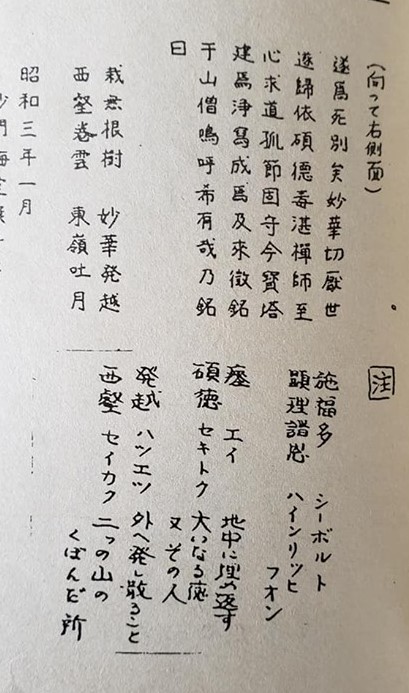 (向って右側面)
遂爲死別矣妙華切厭世
遂歸依碩德毒湛禅師至
心求道孤節固守今寶塔
建爲淨寫成焉及來徴銘
于山僧嗚呼希有哉乃銘
曰
栽無根樹 妙華発越
西壑巻雲 東嶺吐月
昭和三年一月
沙門海
注
施福多 シーボルト
顕理譜恩 ハインリッヒ
フオン
瘞 エイ 地中に埋め返す
碩徳 セキトク 大いなる徳
又その人
発越 ハツエツ 外へ発し散ること
西壑 セイカク 二つの山の
くぼんだ所